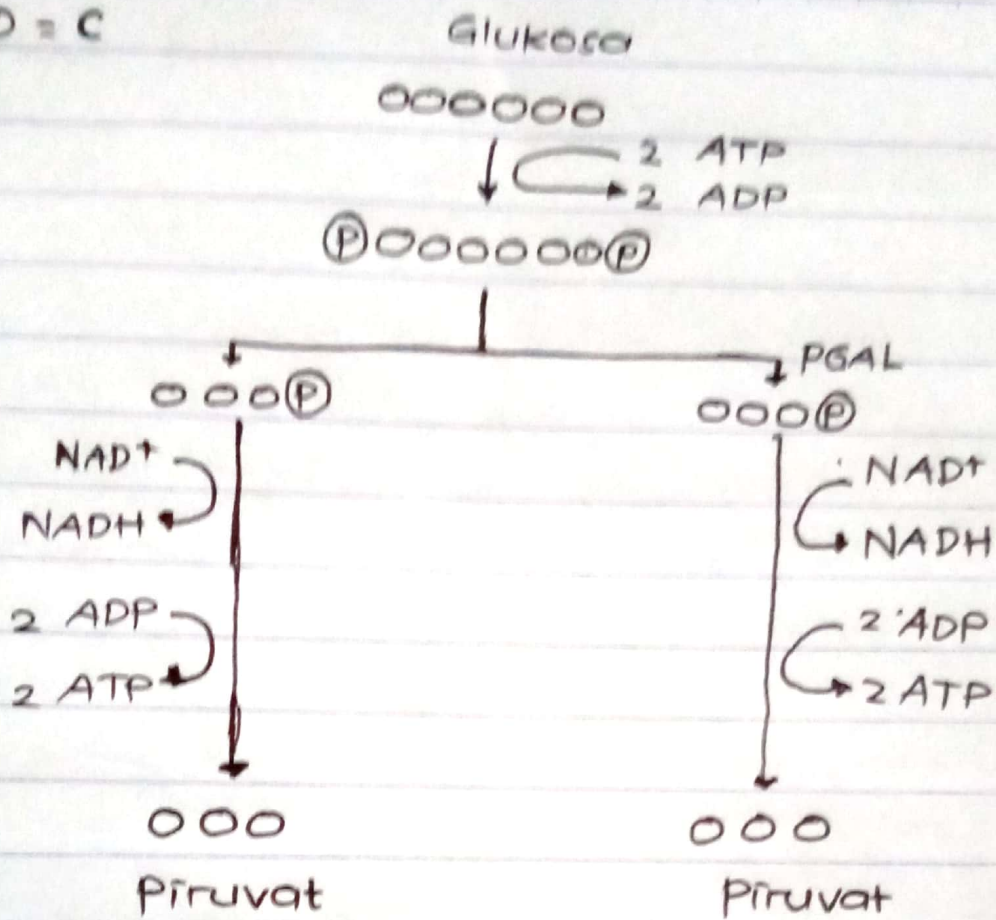 O = C
Glukosa
OOOOOO
2 ATP
2 ADP
ⓅOOOOOOⓅ
PGAL
OOOⓅ
OOOⓅ
NAD+
NADH
NAD+
NADH
2 ADP
2 ATP
2 ADP
2 ATP
OOO
OOO
Piruvat
Piruvat